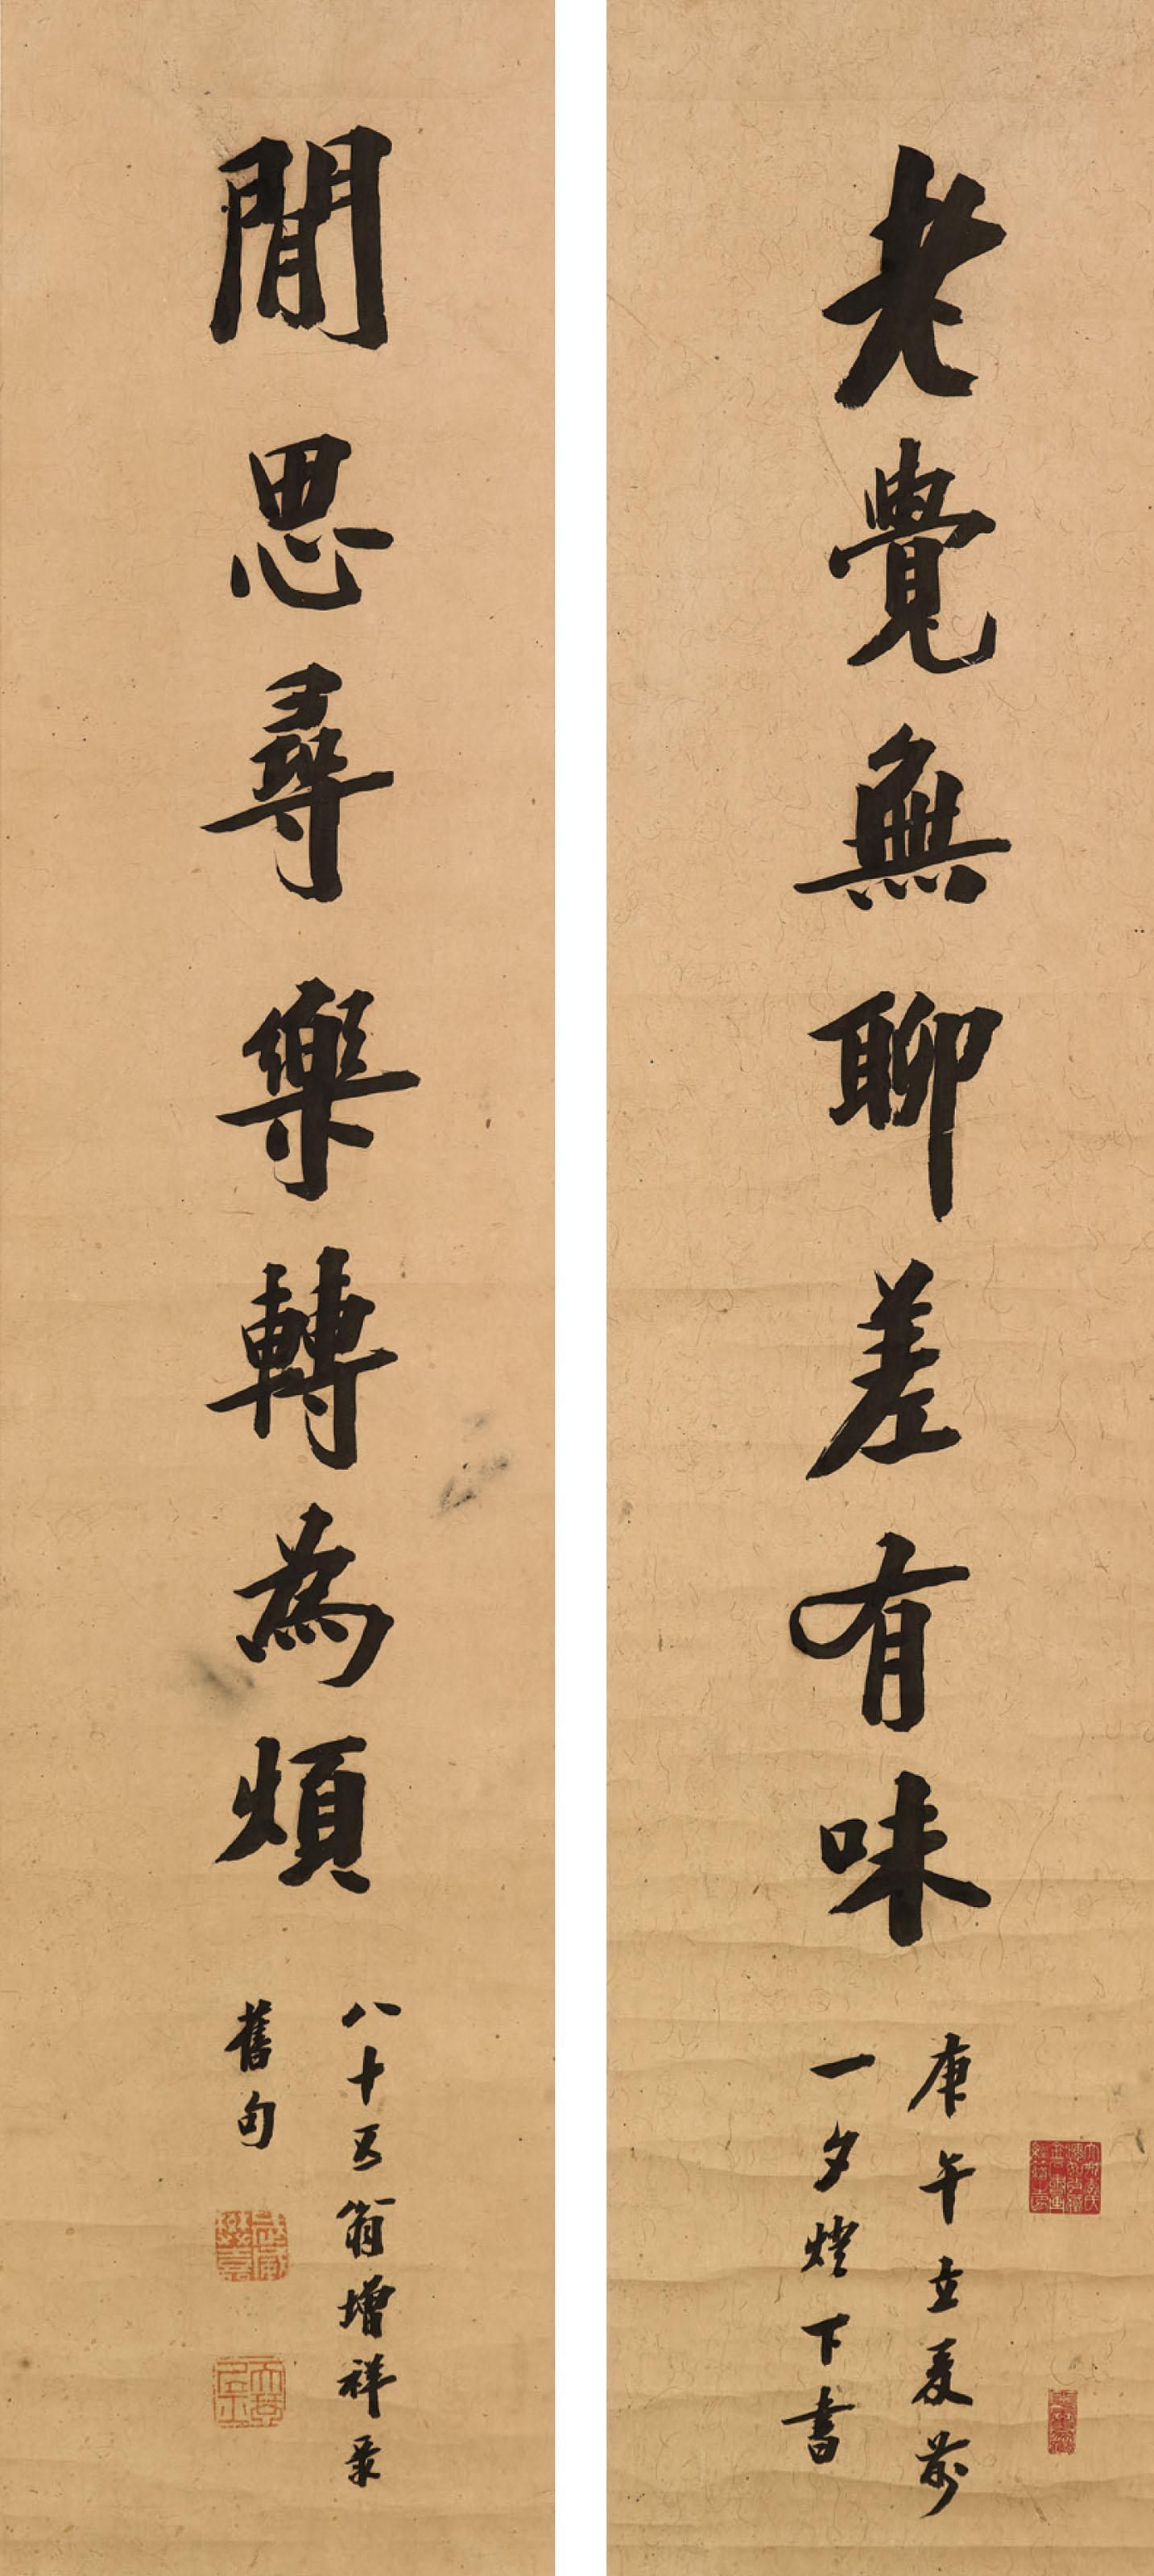 老覺無聊差有味
庚午立夏前
一夕燈下書
閒思尋樂轉為煩
八十五翁增祥录
舊句